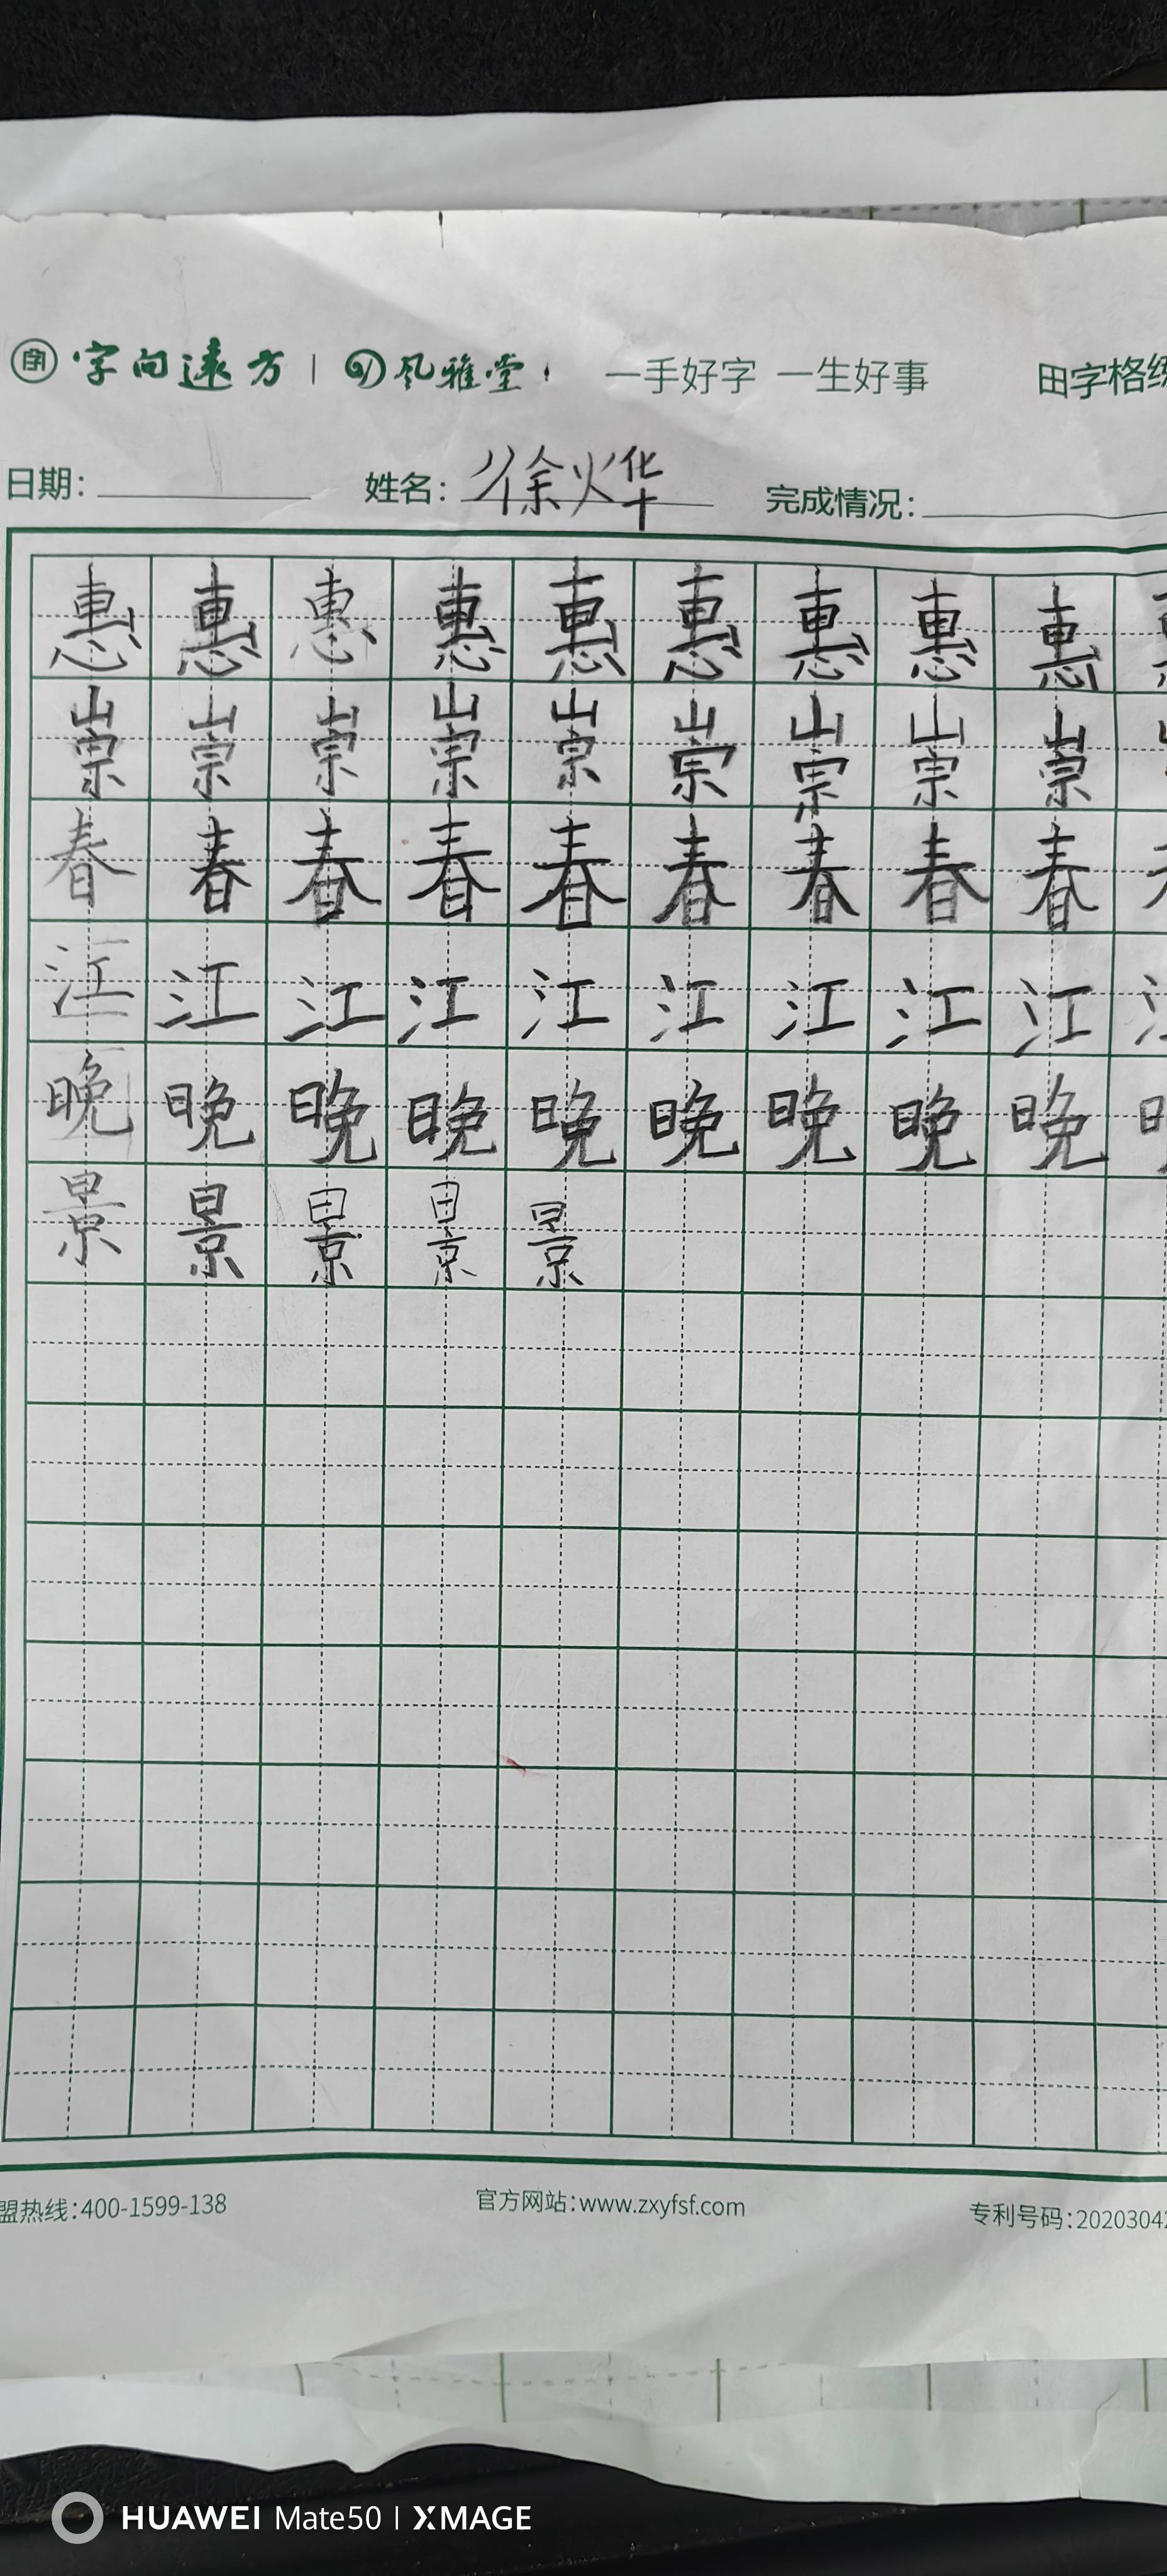 字向遠方 | 风雅堂 一手好字 一生好事 田字格练
日期： 姓名：徐烨 完成情况：
惠惠惠惠惠惠惠惠惠
崇崇崇崇崇崇崇崇崇
春春春春春春春春春
江江江江江江江江江
晚晚晚晚晚晚晚晚晚
景景景景景
盟热线：400-1599-138 官方网站：www.zxyfsf.com 专利号码：2020304
HUAWEI Mate50 | XMAGE